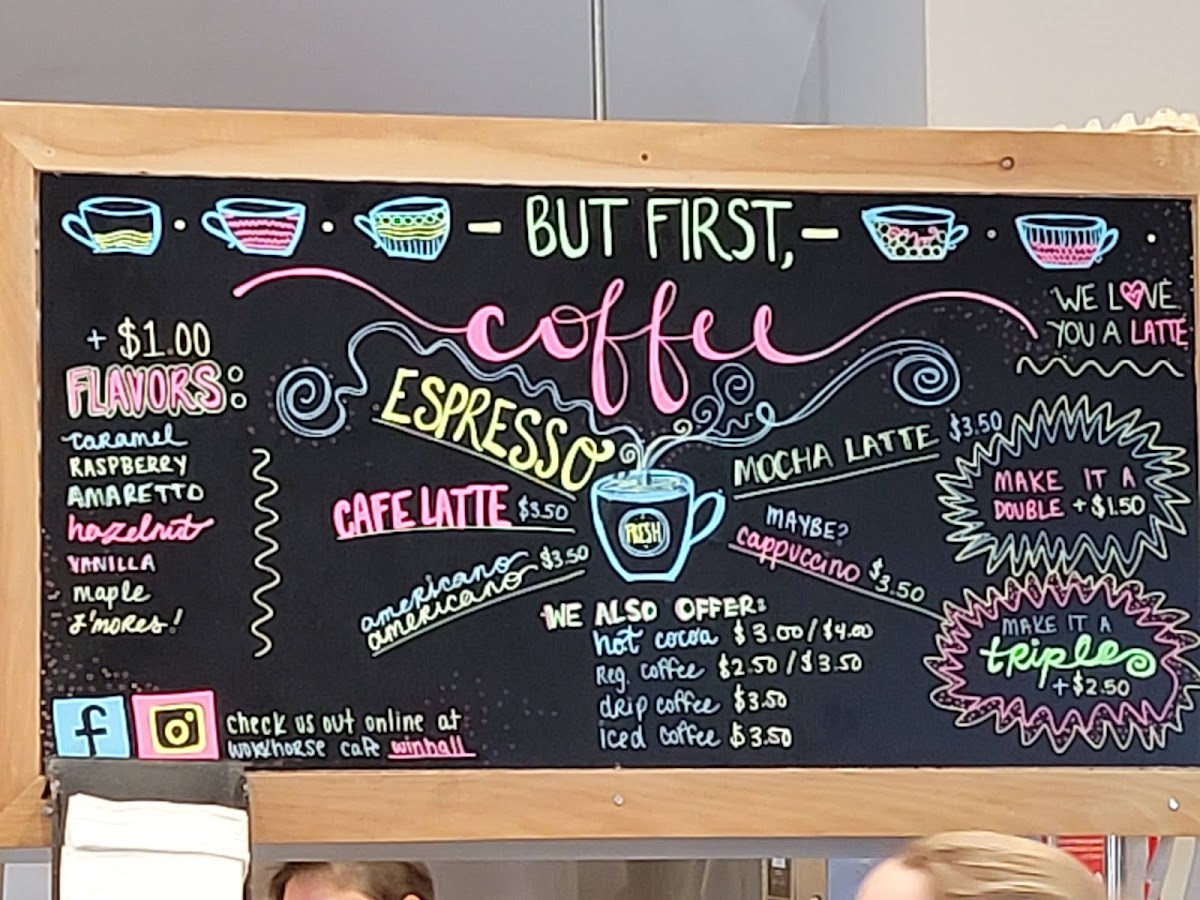 BUT FIRST,
coffee
WE LOVE
YOU A LATTE
+ $1.00
FLAVORS:
caramel
RASPBERRY
AMARETTO
hazelnut
VANILLA
maple
s'mores!
ESPRESSO
CAFE LATTE $3.50
americano
americano $3.50
FRESH
MOCHA LATTE $3.50
MAYBE?
cappuccino $3.50
MAKE IT A
DOUBLE + $1.50
MAKE IT A
triple
+ $2.50
WE ALSO OFFER:
hot cocoa $3.00/$4.00
Reg. coffee $2.50/$3.50
drip coffee $3.50
iced coffee $3.50
f
check us out online at
workhorse cafe winhall